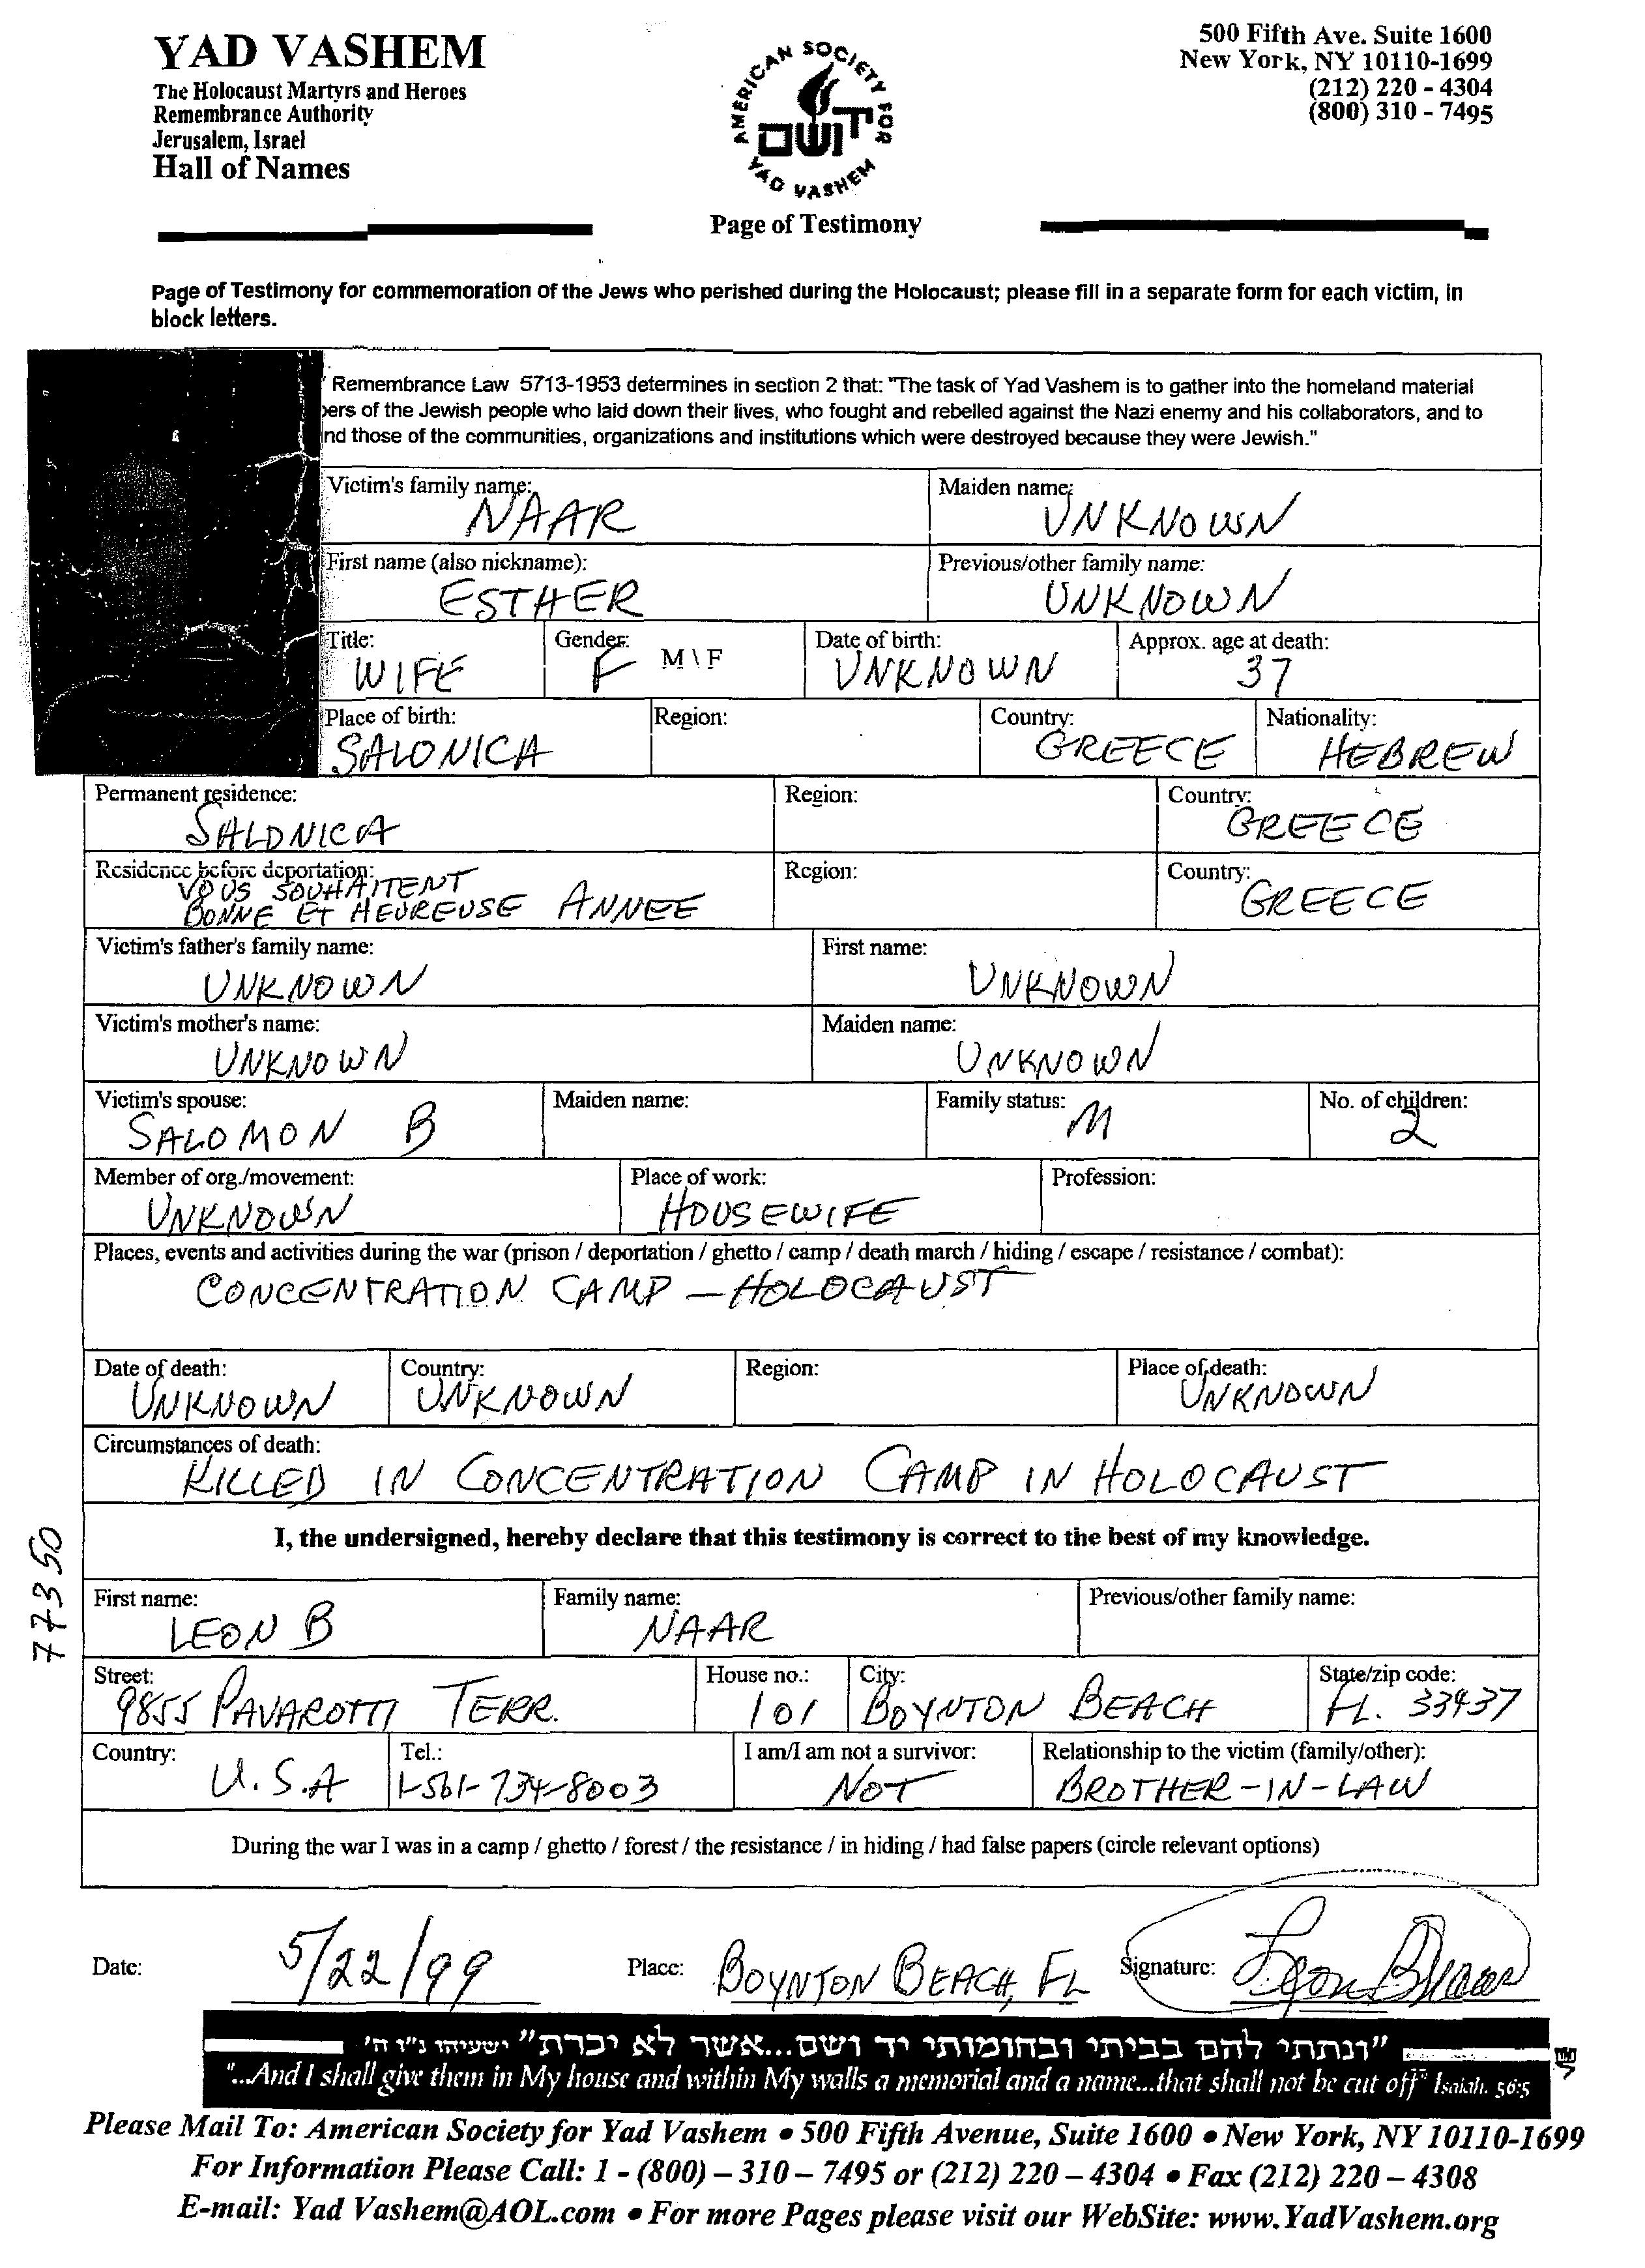 YAD VASHEM
The Holocaust Martyrs and Heroes
Remembrance Authority
Jerusalem, Israel
Hall of Names
AMERICAN SOCIETY FOR
יד ושם
YAD VASHEM
Page of Testimony
500 Fifth Ave. Suite 1600
New York, NY 10110-1699
(212) 220 - 4304
(800) 310 - 7495
Page of Testimony for commemoration of the Jews who perished during the Holocaust; please fill in a separate form for each victim, in
block letters.
Remembrance Law 5713-1953 determines in section 2 that: "The task of Yad Vashem is to gather into the homeland material
ers of the Jewish people who laid down their lives, who fought and rebelled against the Nazi enemy and his collaborators, and to
nd those of the communities, organizations and institutions which were destroyed because they were Jewish."
Victim's family name: Maiden name:
NAAR UNKNOWN
First name (also nickname): Previous/other family name:
ESTHER UNKNOWN
Title: Gender: M \ F Date of birth: Approx. age at death:
WIFE F UNKNOWN 37
Place of birth: Region: Country: Nationality:
SALONICA GREECE HEBREW
Permanent residence: Region: Country:
SALONICA GREECE
Residence before deportation: Region: Country:
VOUS SOUHAITENT
BONNE ET HEUREUSE ANNEE GREECE
Victim's father's family name: First name:
UNKNOWN UNKNOWN
Victim's mother's name: Maiden name:
UNKNOWN UNKNOWN
Victim's spouse: Maiden name: Family status: No. of children:
SALOMON B M 2
Member of org./movement: Place of work: Profession:
UNKNOWN HOUSEWIFE
Places, events and activities during the war (prison / deportation / ghetto / camp / death march / hiding / escape / resistance / combat):
CONCENTRATION CAMP - HOLOCAUST
Date of death: Country: Region: Place of death:
UNKNOWN UNKNOWN UNKNOWN
Circumstances of death:
KILLED IN CONCENTRATION CAMP IN HOLOCAUST
I, the undersigned, hereby declare that this testimony is correct to the best of my knowledge.
77350
First name: Family name: Previous/other family name:
LEON B NAAR
Street: House no.: City: State/zip code:
9855 PAVAROTTI TERR. 101 BOYNTON BEACH FL. 33437
Country: Tel.: I am/I am not a survivor: Relationship to the victim (family/other):
U.S.A 1-561-734-8003 NOT BROTHER-IN-LAW
During the war I was in a camp / ghetto / forest / the resistance / in hiding / had false papers (circle relevant options)
Date: 5/22/99 Place: BOYNTON BEACH, FL Signature: Leon B Naar
"ונתתי להם בביתי ובחומותי יד ושם...אשר לא יכרת" ישעיהו נ"ו ה'
"...And I shall give them in My house and within My walls a memorial and a name...that shall not be cut off" Isaiah. 56:5
Please Mail To: American Society for Yad Vashem • 500 Fifth Avenue, Suite 1600 • New York, NY 10110-1699
For Information Please Call: 1 - (800) – 310 – 7495 or (212) 220 – 4304 • Fax (212) 220 – 4308
E-mail: Yad Vashem@AOL.com • For more Pages please visit our WebSite: www.YadVashem.org